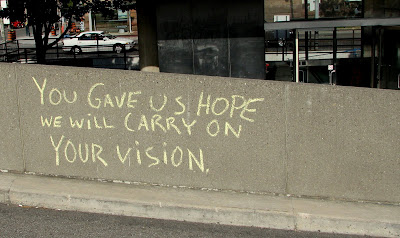 YOU GAVE US HOPE
WE WILL CARRY ON
YOUR VISION.